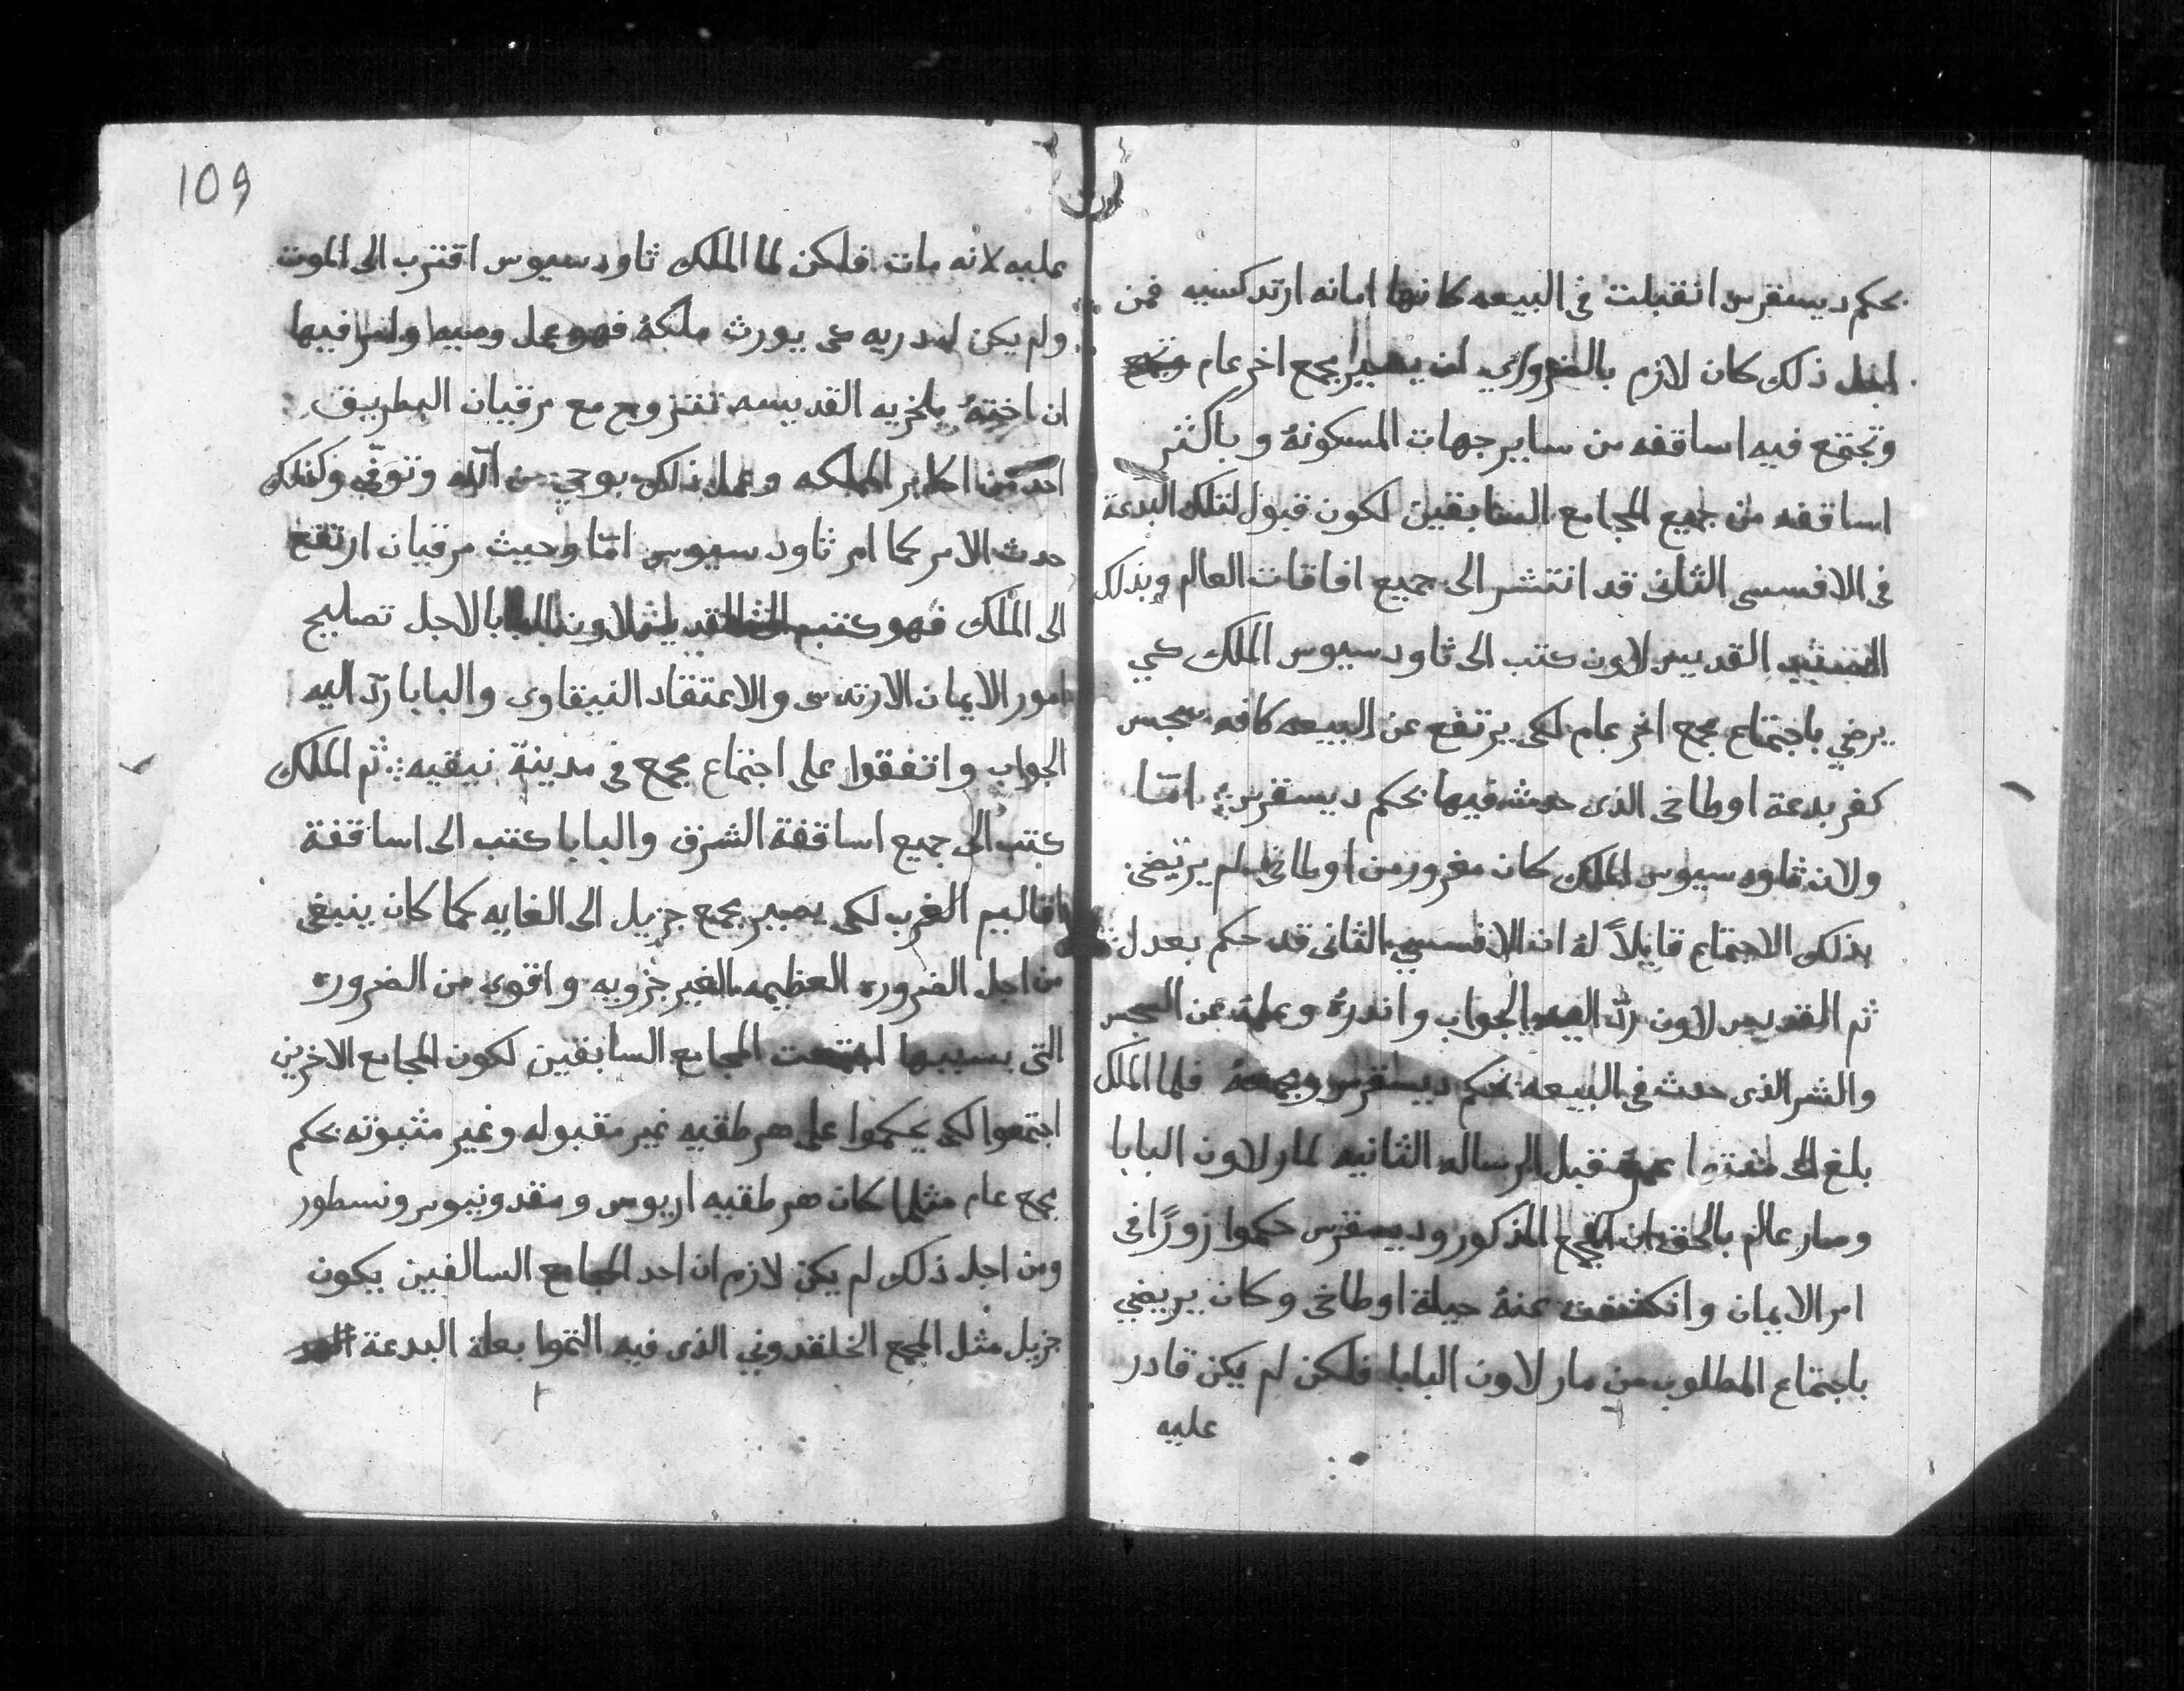 بحكم ديسقرس انقبلت في البيعه كانها امانه ارتدكسيه فمن
اجل ذلك كان لازم بالضروري ان يصير مجمع اخر عام
وتجتمع فيه اساقفه من ساير جهات المسكونة وبالكثر
اساقفه من جميع المجامع السابقين لكون قبول لتلك البدعة
في الافسسى الثانى قد انتشر الى جميع افاقات العالم وبذلك
القديس لاون كتب الى ثاودسيوس الملك كي
يرضي باجتماع مجمع اخر عام لكى يرتفع عن البيعه كافه سجس
كفر بدعة اوطاخى الذى حدث فيها بحكم ديسقرس ؛ امّا
ولان ثاودسيوس الملك كان مغرور من اوطاخى لم يرتضى
بذلك الاجتماع قايلاً لهُ ان الافسسي الثانى قد حكم بعدل
ثم القديس لاون ردّ اليه الجواب واندرهُ وعلمهُ عن السجس
والشر الذى حدث في البيعه بحكم ديسقرس ومجمعهُ فلما الملك
بلغ الى عمرهُ قبل الرساله الثانيه لمار لاون البابا
وصار عالم بالحق ان المجمع المذكور وديسقرس حكموا زورًا في
امر الايمان وانكشفت عنهُ حيلة اوطاخى وكان يريضي
باجتماع المطلوب من مار لاون البابا فلكن لم يكن قادر
عليه
109
عليه لانه مات فلكن لما الملك ثاودسيوس اقترب الى الموت
ولم يكن لهُ دريه كى يورث ملكهُ فهو عمل وصيه وامر فيها
ان اختهُ بلخريه القديسه تتزوج مع مرقيان البطريق
احد من اكابر المملكه وعمل ذلك بوحي من الله وتوفّي وكذلك
حدث الامر كما امر ثاودسيوس امّا وحيث مرقيان ارتفع
الى المُلك فهو كتب القديس لاون البابا لاجل تصليح
امور الايمان الارتدسى والاعتقاد النيقاوى والبابا ردّ اليه
الجواب واتفقوا على اجتماع مجمع فى مدينة نيقيه ؛ ثم الملك
كتب الى جميع اساقفة الشرق والبابا كتب الى اساقفة
اقاليم الغرب لكى يصير مجمع جزيل الى الغايه كما كان ينبغى
من اجل الضروره العظيمه الغير جزويه واقوى من الضروره
التى بسببها اجتمعت المجامع السابقين لكون المجامع الاخرين
اجتمعوا لكى يحكموا على هرطقيه غير مقبوله وغير مثبوته بحكم
مجمع عام مثلما كان هرطقيه اريوس ومقدونيوس ونسطور
ومن اجل ذلك لم يكن لازم ان احد المجامع السالفين يكون
جزيل مثل المجمع الخلقدوني الذى فيه التموا بعلة البدعة